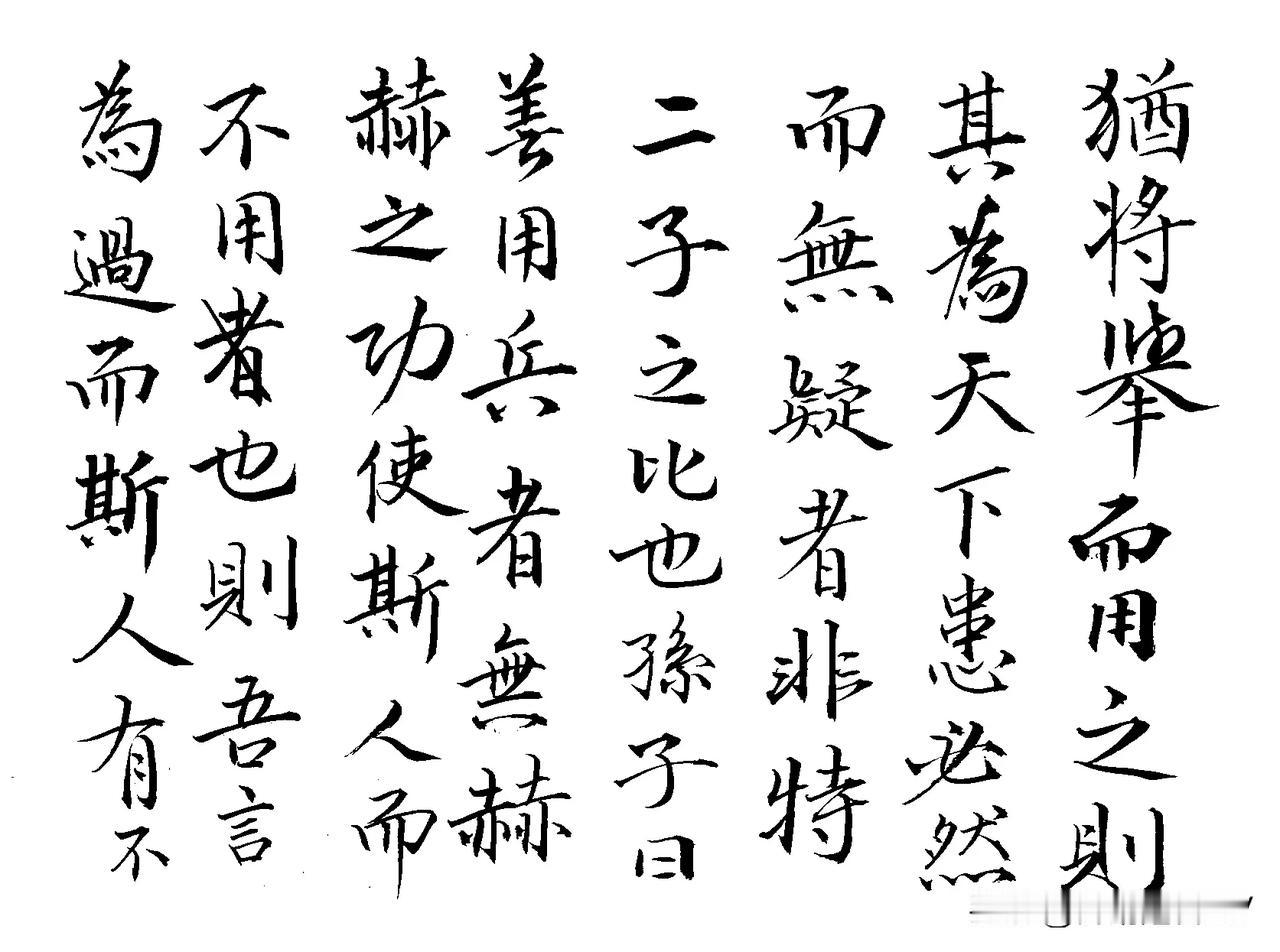 猶將舉而用之則
其為天下患必然
而無疑者非特
二子之比也孫子曰
善用兵者無赫
赫之功使斯人而
不用者也則吾言
為過而斯人有不